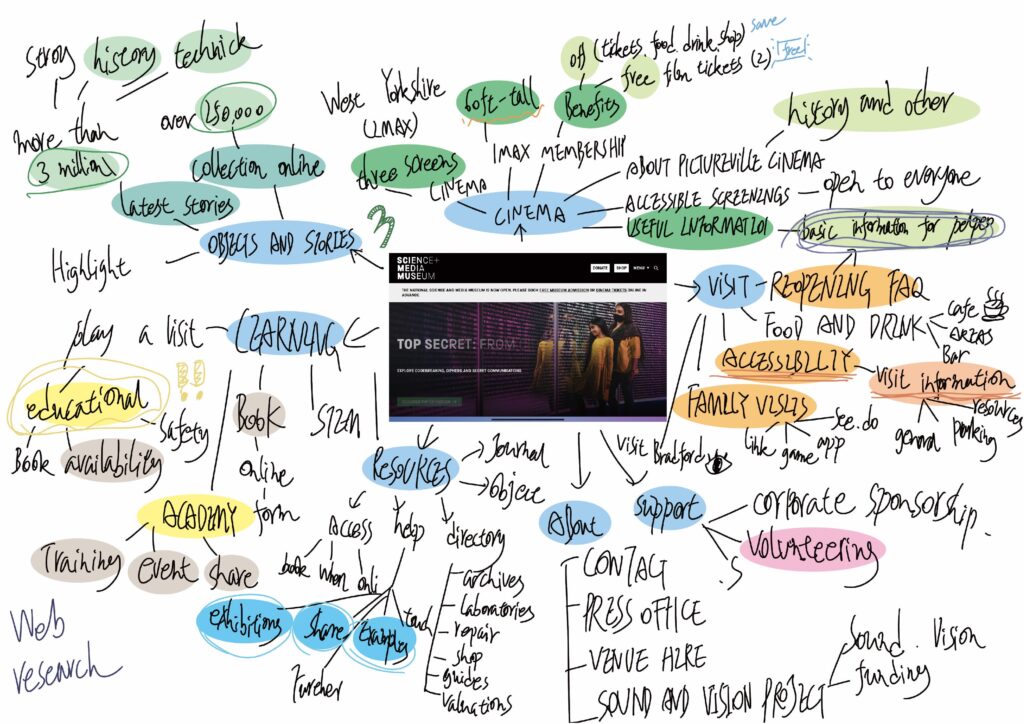 stroy history technick
more than
3 million
over 250,000
collection online
latest stories
OBJECTS AND STORIES
Highlight
West Yorkshire
(IMAX)
three screens
CINEMA
3
IMAX MEMBERSHIP
Benefits
off (tickets.food.drink.shop) save
free film tickets (2) Free!
CINEMA
ABOUT PICTUREVILLE CINEMA
history and other
ACCESSIBLE SCREENINGS
open to everyone
USEFUL INFORMATIOI
basic information for
SCIENCE+
MEDIA
MUSEUM
DONATE
SHOP
MENU
THE NATIONAL SCIENCE AND MEDIA MUSEUM IS NOW OPEN. PLEASE BOOK FAST MUSEUM ADMISSION OR CINEMA TICKETS ONLINE IN
ADVANCE.
TOP SECRET: FROM
EXPLORE CODEBREAKING, CIPHERS AND SECRET COMMUNICATIONS
VISIT
REOPENING FAQ
FOOD AND DRINK
cafe
AREAS
Bar
ACCESSIBILITY
visit information
general
parking
resources
FAMILY VISITS
like
game
app
see.do
visit Bradford
LEARNING
play a visit
educational
!!
Book
availability
safety
Book
online
form
STEM
ACADEMY
Training
event
share
RESOURCES
Journal
Objece
Access
book
when
onli
help
exhibitions
share
Examples
touch
Furcher
directory
archives
laboratories
repair
shop
guides
valuations
About
CONTACT
PRESS OFFICE
VENUE HIRE
SOUND AND VISION PROJECT
Sound. Vision
funding
support
corporate sponsorship.
Volunteering
.S
Web
research